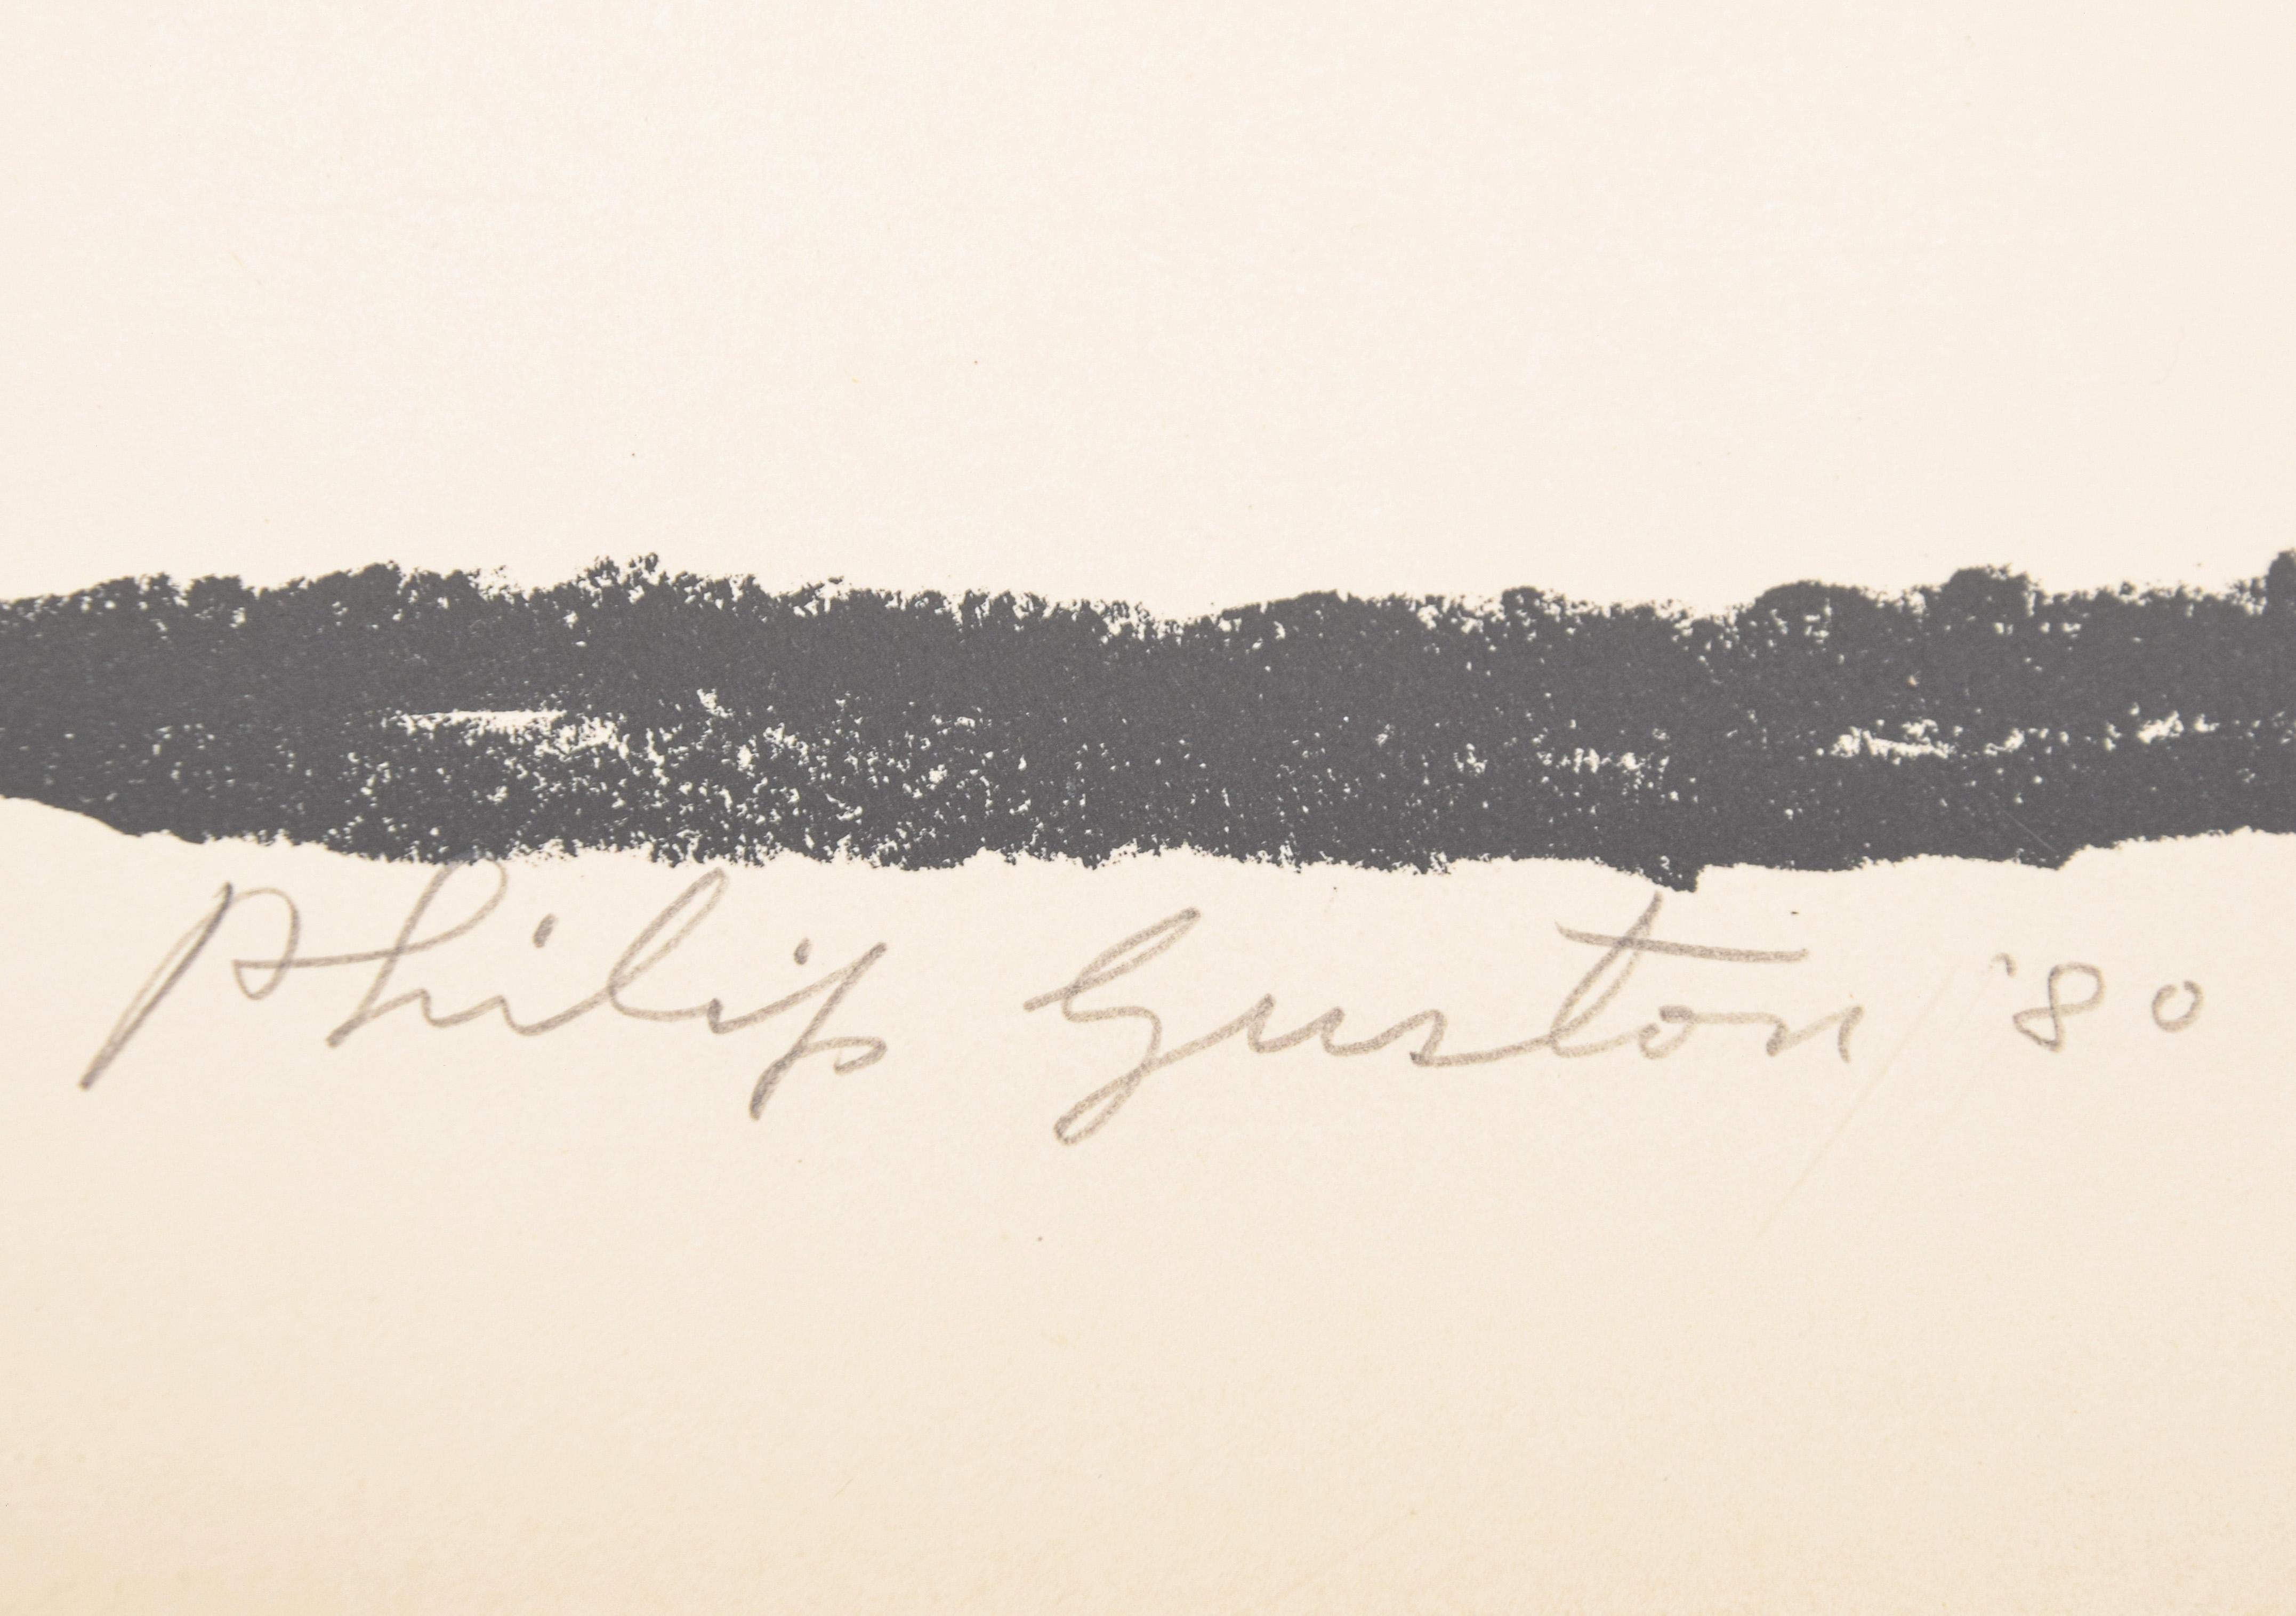 Philip Guston '80